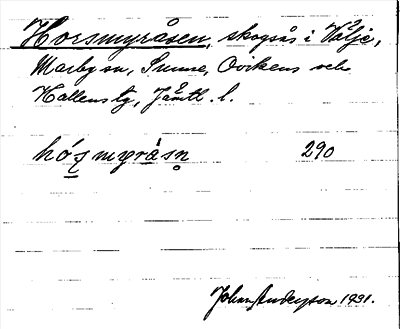 Horsmyråsen, skogsås i Välje,
Marby sn, Sunne, Ovikens och
Hallens tg, Jämtl. l.
hósmyràsn 290
Johan Anderson 1931.